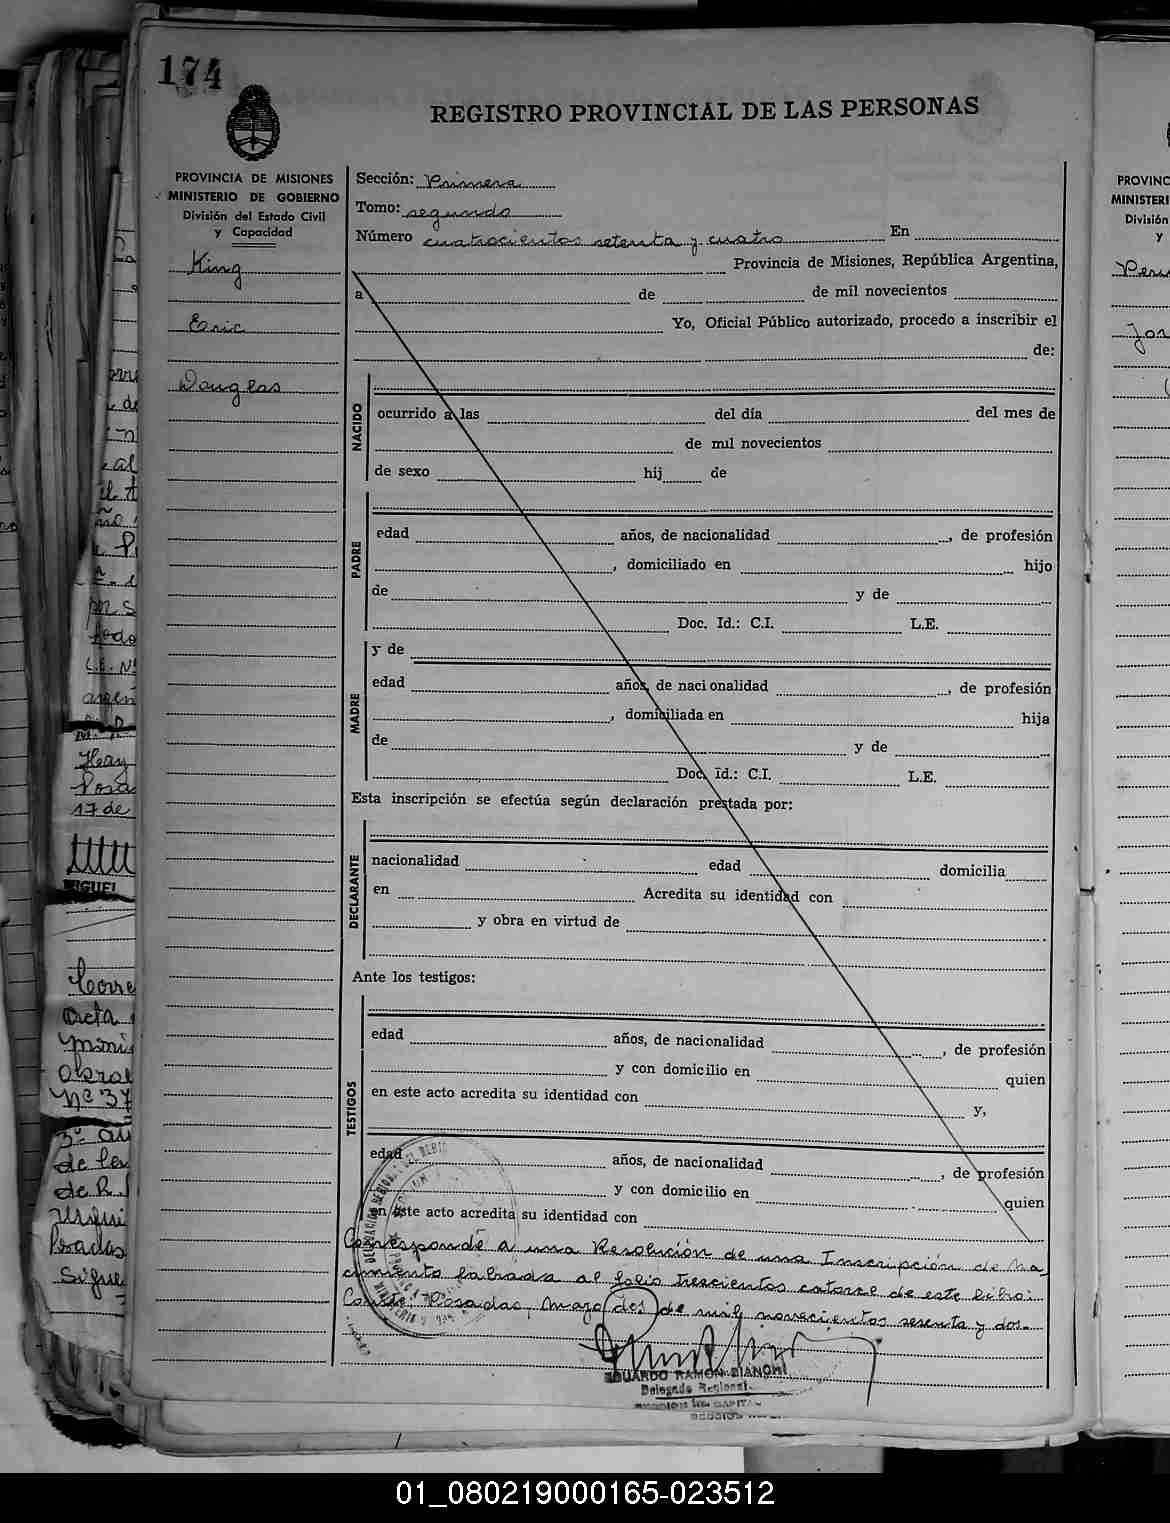 174
REGISTRO PROVINCIAL DE LAS PERSONAS
PROVINCIA DE MISIONES
MINISTERIO DE GOBIERNO
División del Estado Civil
y Capacidad
King
Eric
Douglas
Sección: Primera
Tomo: segundo
Número cuatrocientos setenta y cuatro En
Provincia de Misiones, República Argentina,
a de de mil novecientos
Yo, Oficial Público autorizado, procedo a inscribir el
de:
NACIDO
ocurrido a las del día del mes de
de mil novecientos
de sexo hij de
PADRE
edad años, de nacionalidad , de profesión
, domiciliado en hijo
de y de
Doc. Id.: C.I. L.E.
MADRE
y de
edad años, de nacionalidad , de profesión
, domiciliada en hija
de y de
Doc. Id.: C.I. L.E.
Esta inscripción se efectúa según declaración prestada por:
DECLARANTE
nacionalidad edad domicilia
en Acredita su identidad con
y obra en virtud de
Ante los testigos:
TESTIGOS
edad años, de nacionalidad , de profesión
y con domicilio en quien
en este acto acredita su identidad con y,
edad años, de nacionalidad , de profesión
y con domicilio en quien
en este acto acredita su identidad con
Corresponde a una Resolución de una Inscripción de Na-
cimiento labrada al folio trescientos catorce de este libro:
Conste, Posadas, Mayo de mil novecientos sesenta y dos.-
EDUARDO RAMON BIANCHI
Delegado Regional
PROVINC
MINISTERI
División
y
Jor
Corre
Acta
Nº 37
de
de R.
Posadas
Sigue
L.E. Nº
argen
Posa
17 de
MIGUEL
01_080219000165-023512